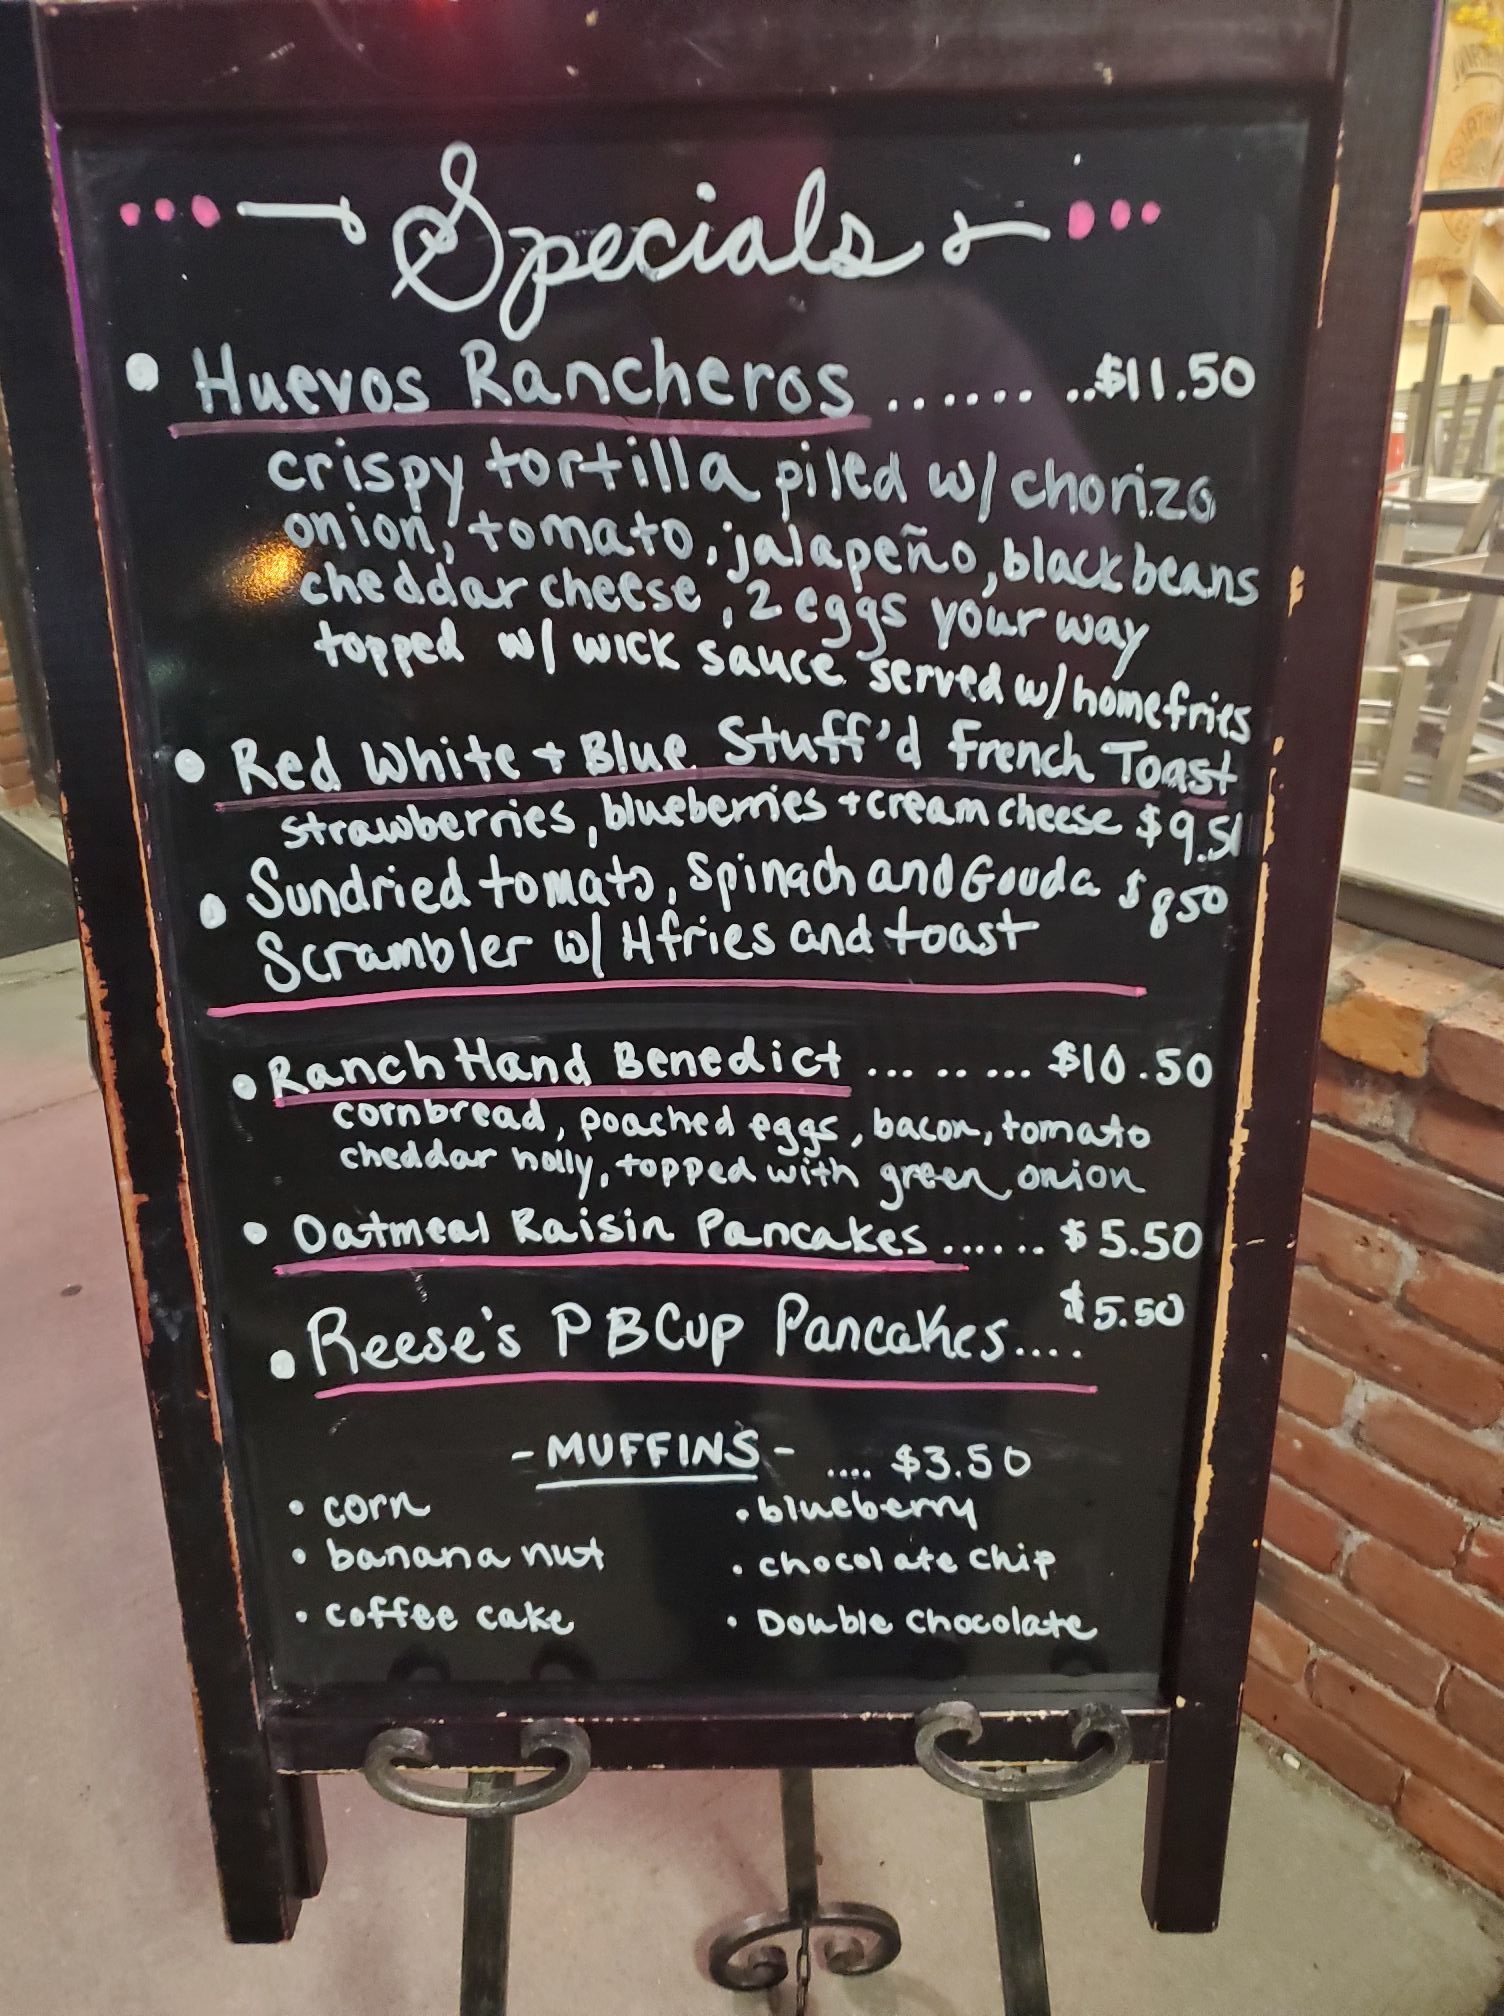 Specials
• Huevos Rancheros ....... ..$11.50
crispy tortilla piled w/ chorizo
onion, tomato, jalapeño, black beans
cheddar cheese, 2 eggs your way
topped w/ wick sauce served w/ homefries
• Red White + Blue Stuff'd French Toast
strawberries, blueberries + cream cheese $9.5
• Sundried tomato, Spinach and Gouda $850
Scrambler w/ Hfries and toast
• Ranch Hand Benedict ... .. ... $10.50
cornbread, poached eggs, bacon, tomato
cheddar holly, topped with green onion
• Oatmeal Raisin Pancakes ...... $5.50
• Reese's PB Cup Pancakes.... $5.50
- MUFFINS - .... $3.50
• corn • blueberry
• banana nut • chocolate chip
• coffee cake • Double Chocolate